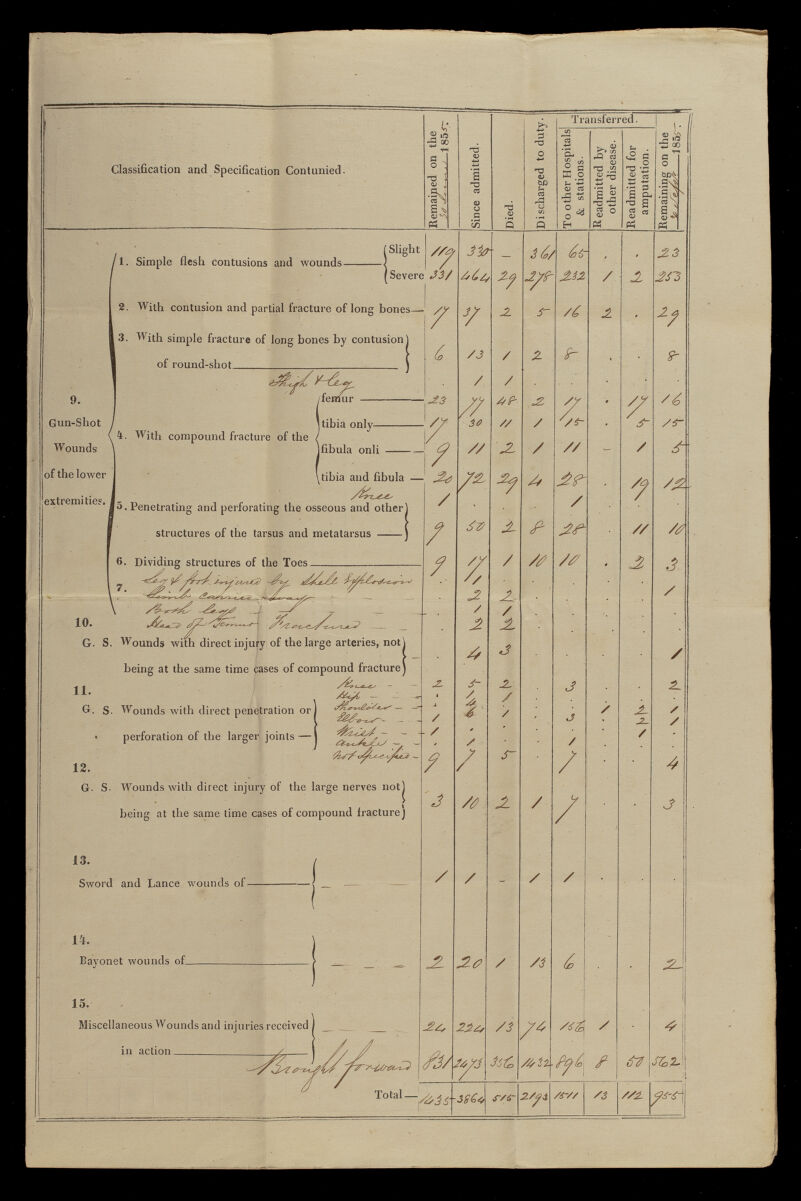 Classification and Specification Contunied.
Remained on the 1855.
Since admitted.
Died.
Discharged to duty.
Transferred.
To other Hospitals & stations.
Readmitted by other disease.
Readmitted for amputation.
Remaining on the 1855.
1. Simple flesh contusions and wounds — Slight 119 330 – 361 65 . . 23
Severe 331 464 29 278 232 1 2 253
2. With contusion and partial fracture of long bones— 17 37 2 5 16 2 . 29
3. With simple fracture of long bones by contusion
of round-shot 6 13 1 2 8 . . 8
Thigh & leg . 1 1 . . . . .
9.
Gun-Shot
Wounds
of the lower
extremities.
4. With compound fracture of the
femur 23 77 48 2 17 . 17 16
tibia only 17 30 11 1 15 . 5 15
fibula onli 9 11 2 1 11 – 1 5
tibia and fibula 20 72 29 4 28 . 19 12
Knee 1 . . . 1 . . .
5. Penetrating and perforating the osseous and other
structures of the tarsus and metatarsus 9 50 2 8 28 . 11 10
6. Dividing structures of the Toes 9 17 1 10 10 . 2 3
7. Leg & foot injured by Shell Explosion . 1 . . . . . .
Limb carried away . 2 2 . . . . 1
Both Legs . 1 1 . . . . .
Head of Femur Fractured . 2 2 . . . . .
10.
G. S. Wounds with direct injury of the large arteries, not
being at the same time cases of compound fracture . 4 3 . . . . 1
11.
G. S. Wounds with direct penetration or
perforation of the larger joints —
Knee 2 5 2 . 3 . . 2
Hip . 1 1 . . . . .
Shoulder . 4 . . . 1 2 1
Elbow 1 6 1 . 3 . 2 1
Wrist 1 . . . . . 1 .
Ankle . 1 . . 1 . . .
Not Specified 9 7 5 . 7 . . 4
12.
G. S. Wounds with direct injury of the large nerves not
being at the same time cases of compound fracture 3 10 2 1 7 . . 3
13.
Sword and Lance wounds of 1 1 – 1 1 . . .
14.
Bayonet wounds of 2 20 1 13 6 . . 2
15.
Miscellaneous Wounds and injuries received
in action 24 224 13 74 156 1 . 4
Brought forward 831 2473 356 1432 896 8 50 562
Total— 1435 3864 515 2193 1511 13 112 955